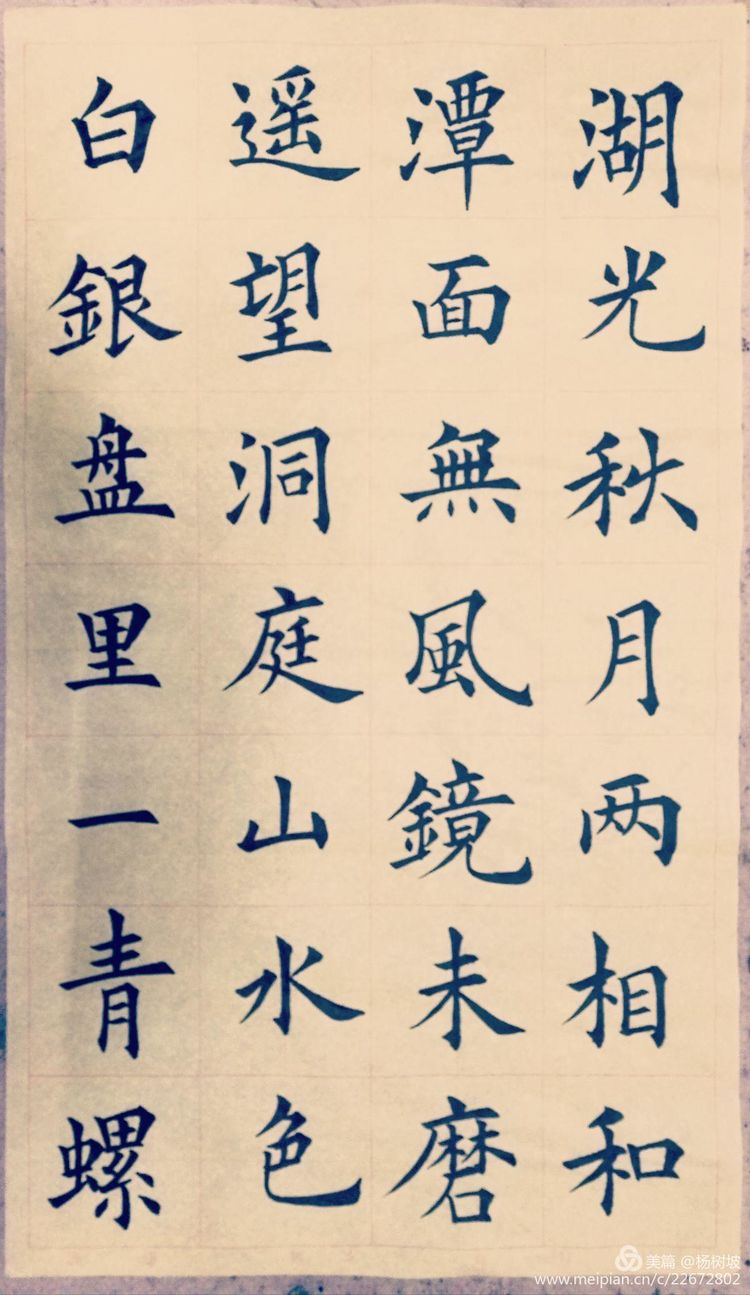 湖光秋月两相和
潭面無風鏡未磨
遥望洞庭山水色
白銀盘里一青螺
美篇 @杨树坡
www.meipian.cn/c/22672802